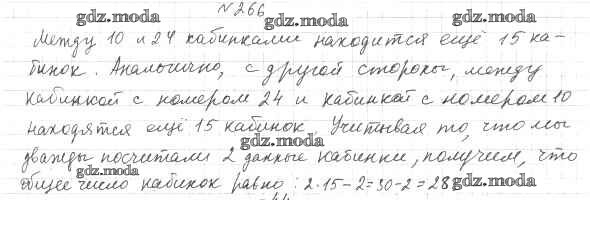 № 266
gdz.moda gdz.moda gdz.moda
Между 10 и 24 кабинками находится ещё 15 ка-
бинок. Аналогично, с другой стороны, между
gdz.moda gdz.moda
кабинкой с номером 24 и кабинкой с номером 10
находятся ещё 15 кабинок. Учитывая то, что мы
gdz.moda
дважды посчитали 2 данные кабинки, получим, что
gdz.moda
общее число кабинок равно: 2·15-2=30-2=28
gdz.moda